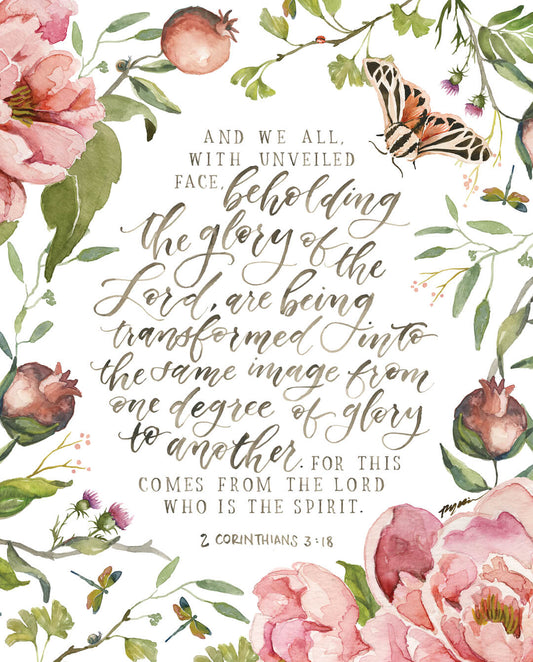 AND WE ALL,
WITH UNVEILED
FACE, beholding
the glory of the
Lord, are being
transformed into
the same image from
one degree of glory
to another. FOR THIS
COMES FROM THE LORD
WHO IS THE SPIRIT.
2 CORINTHIANS 3:18